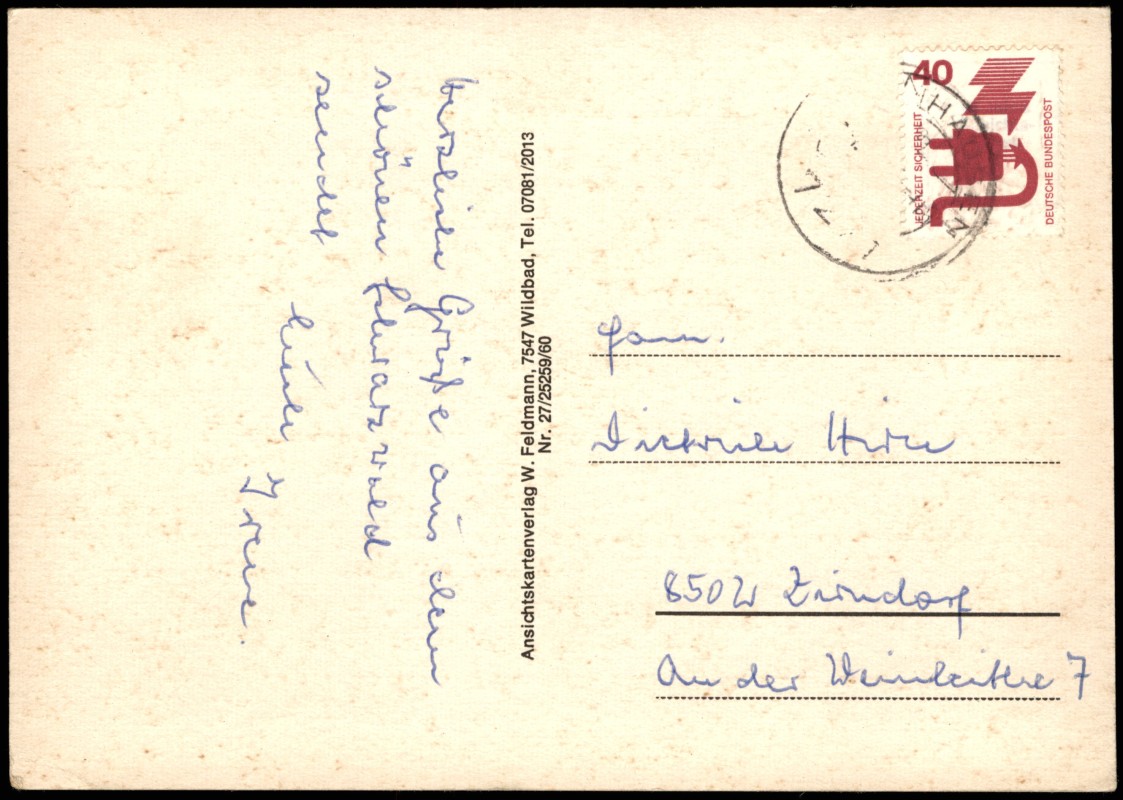 herzliche Grüße aus dem
schönen Schwarzwald
sendet
Irene.
Ansichtskartenverlag W. Feldmann, 7547 Wildbad, Tel. 07081/2013
Nr. 27/25259/60
40
JEDERZEIT SICHERHEIT
DEUTSCHE BUNDESPOST
Fam.
8502 Zirndorf
An der Weinleithe 7